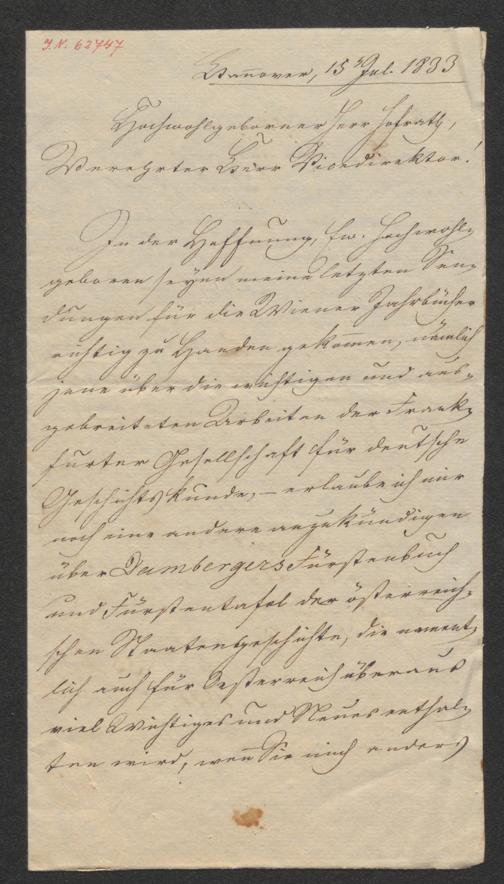 J.N. 62747
Hannover, 15 Jul. 1833
Hochwohlgeborner Herr Hofrath,
Verehrter Herr Vicedirektor!
In der Hoffnung, Ew. Hochwohl-
geboren seyen meine letzten Sen-
dungen für die Wiener Jahrbücher
richtig zu Handen gekommen, nämlich
jene über die wichtigen und aus-
gebreiteten Arbeiten der Frank-
furter Gesellschaft für deutsche
Geschichtskunde, – erlaube ich mir
noch eine andere anzukündigen
über Dambergers Fürstenbuch
und Fürstentafel der österreich-
schen Staatengeschichte, die nament-
lich auch für Oesterreich überaus
viel Wichtiges und Neues enthal-
ten wird, wenn Sie mich anders